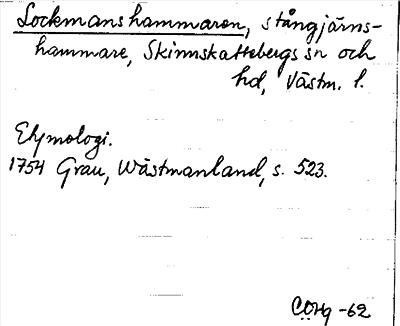 Lockmanshammaren, stångjärns-
hammare, Skinnskattebergs sn och
hd, Västm. l.
Etymologi.
1754 Grau, Wästmanland, s. 523.
CÖHg -62